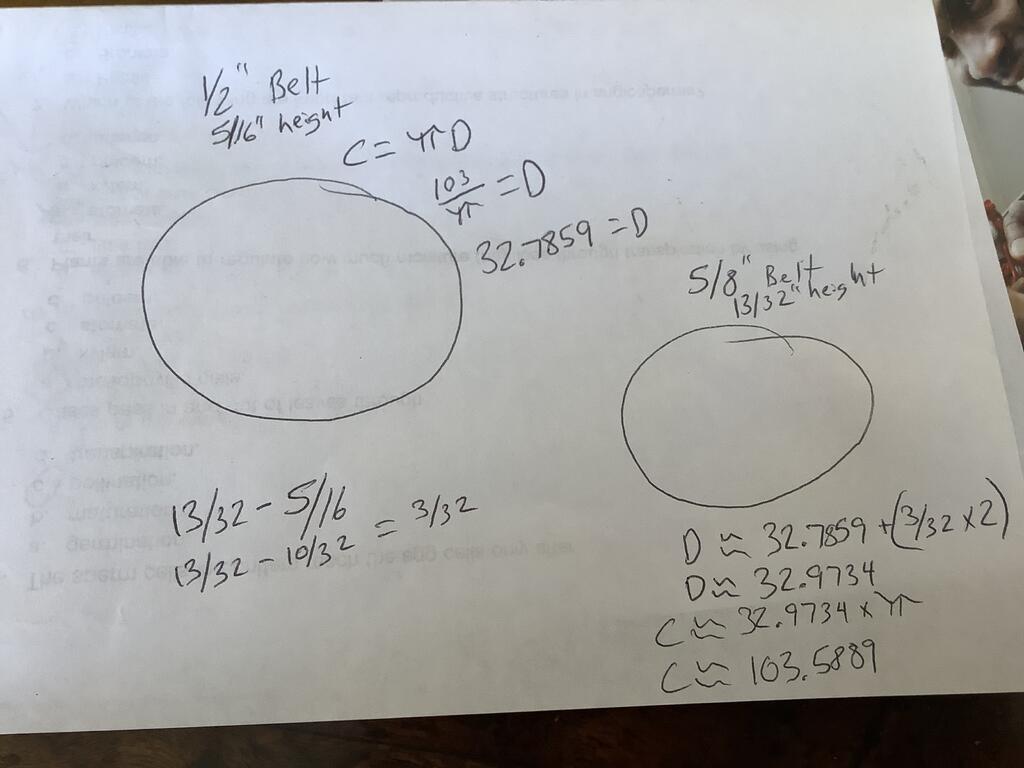 1/2" Belt
5/16" height
C = π D
103/π = D
32.7859 = D
5/8" Belt
13/32" height
13/32 - 5/16
13/32 - 10/32 = 3/32
D ≈ 32.7859 + (3/32 x 2)
D ≈ 32.9734
C ≈ 32.9734 x π
C ≈ 103.5889